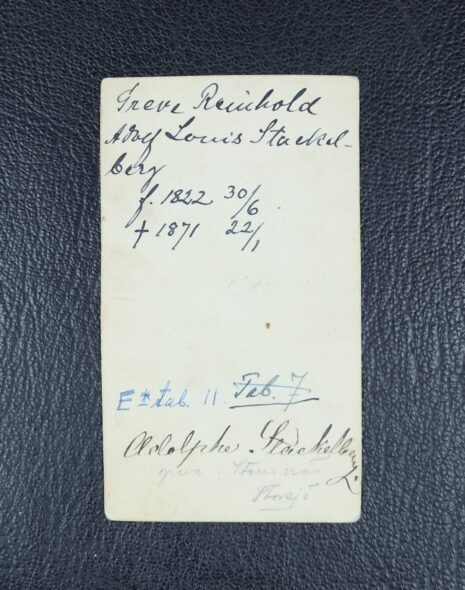 Greve Reinhold
Adolf Louis Stackel-
berg
f. 1822 30/6
† 1871 22/1
E* tab. 11. Tab. 7
Adolphe Stackelberg.
Stensnäs